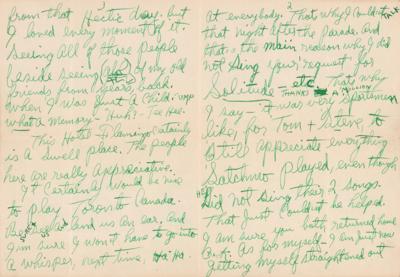 3
from that Hectic day. But
I loved every moment of it.
Seeing All of those people
beside seeing of my old
friends from years back
When I was Just A Child.
what A memory- Huh? Tee Hee.
This Hotel Flamingo Certainly
is A swell place. The people
here are Really Appreciative.
It Certainly Would be nice
to play Toronto Canada.
and us An ear. And
I'm sure I won't have to go into
A whisper, next time, Ha' Ha.
2
At everybody. That's why I couldn't TALK
that Night After the Parade. And
that's the Main reason why I did
Not Sing your request for
Solitude etc. That's why
I say - it was very sportsmen THANKS A MILLION
like, for Tom + Steve, to
Still Appreciate everything
Satchmo played, even though
Did Not Sing their 2 Songs.
That Just Couldn't be helped.
I am sure you both, returned home
O.K. As for myself - I am just now
Getting myself straightened out